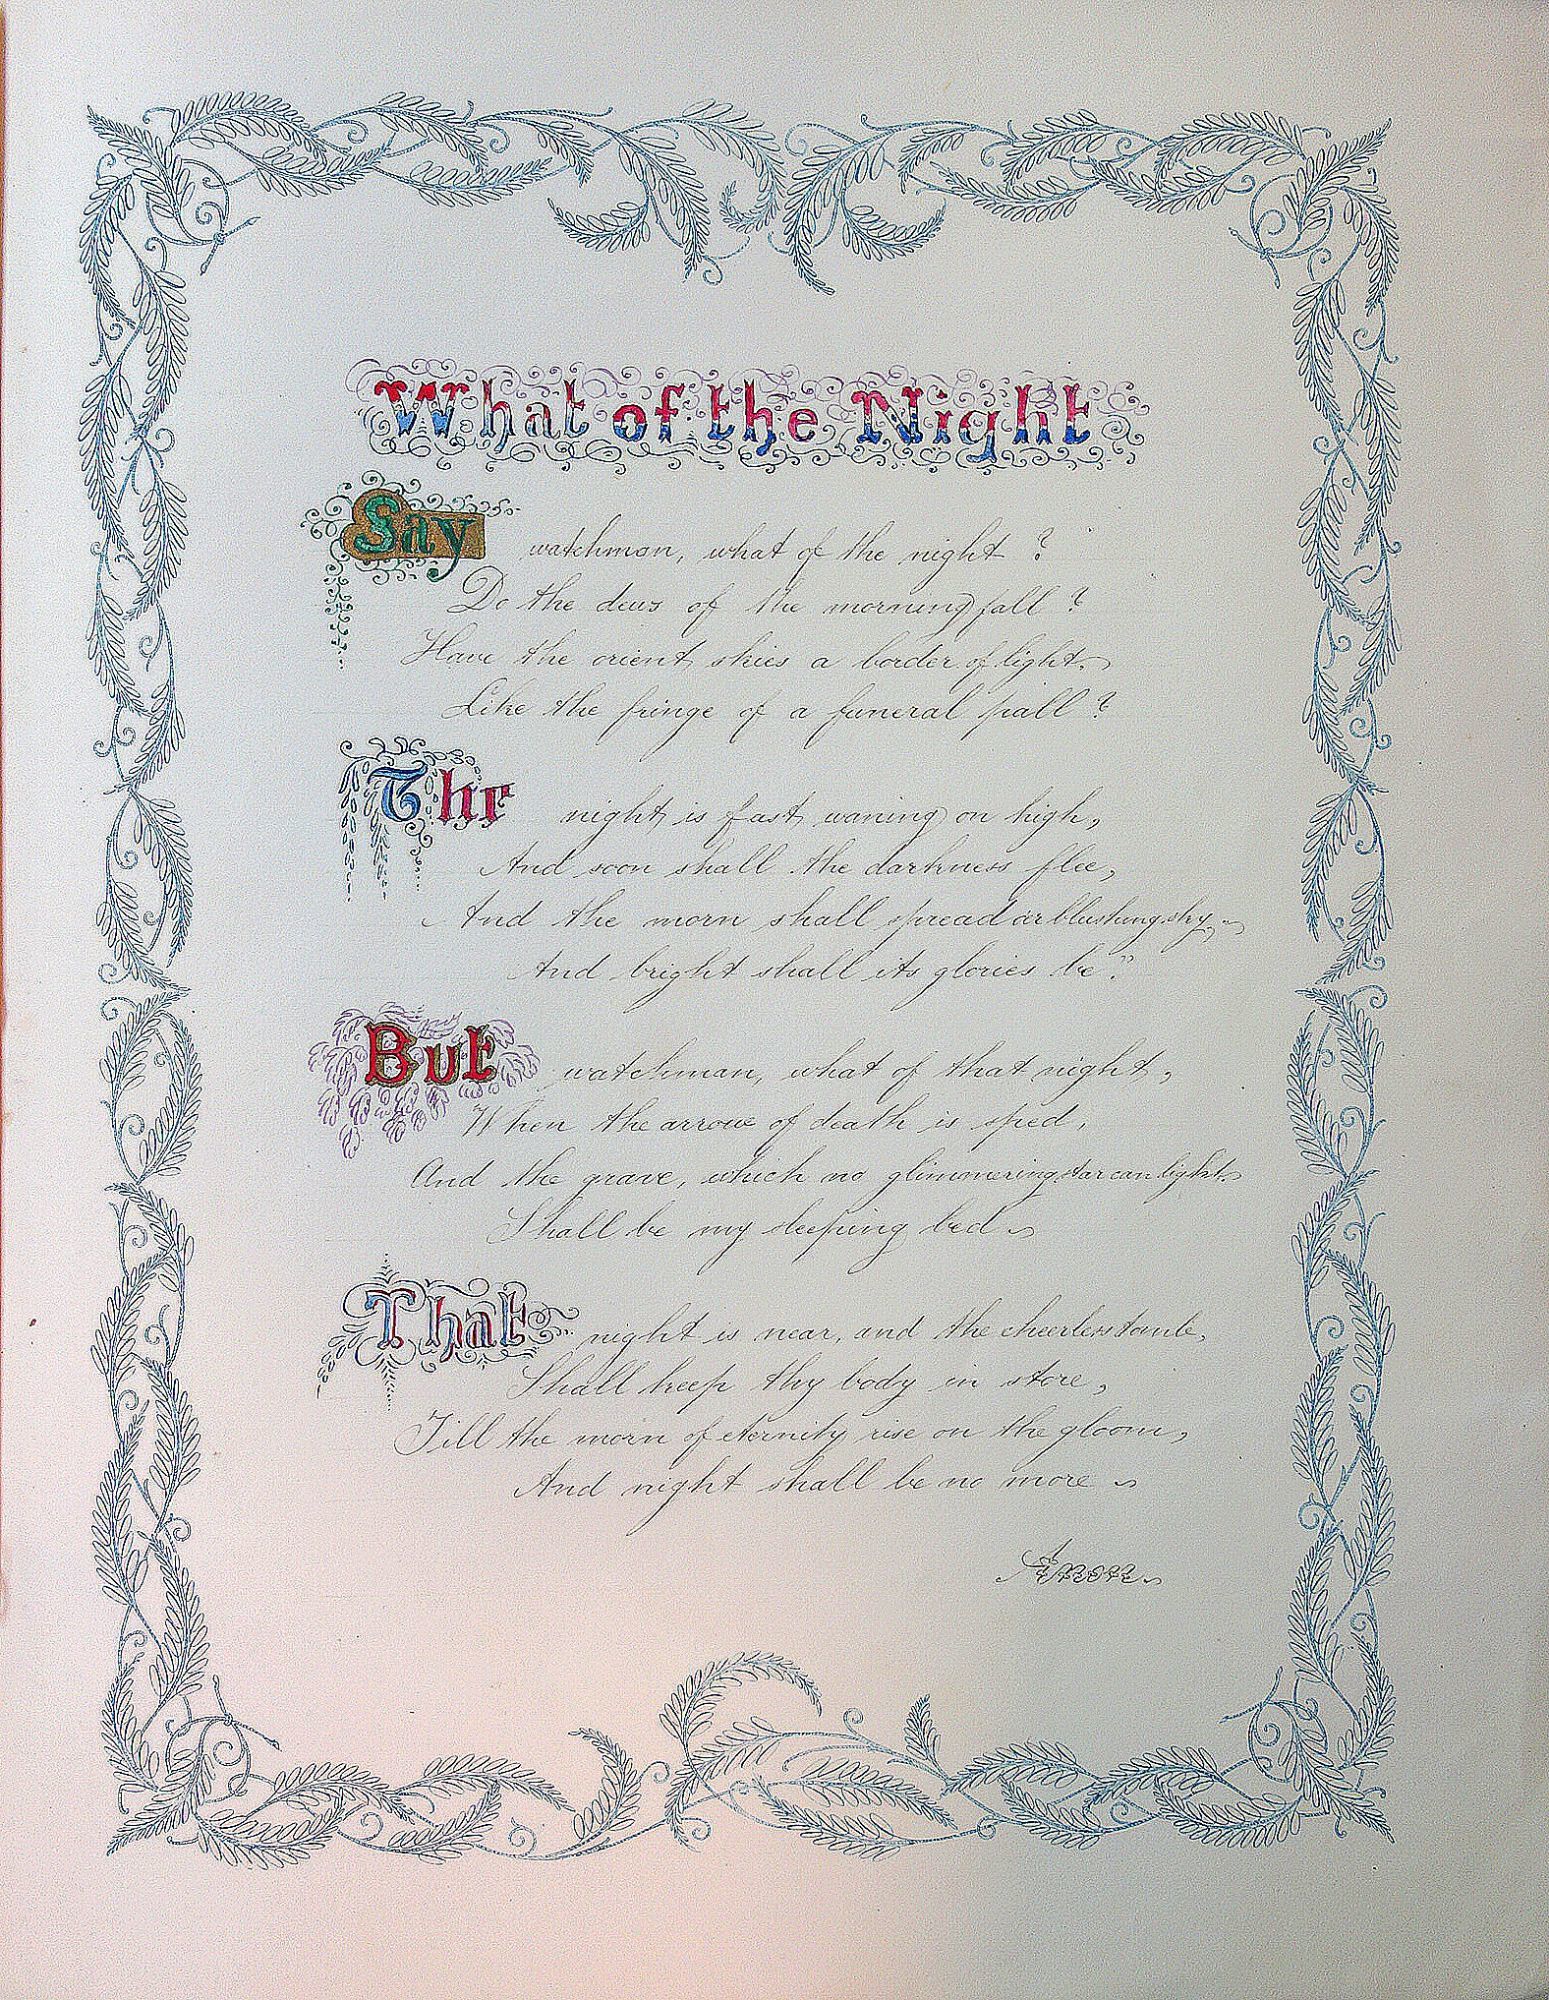 What of the Night
Say watchman, what of the night?
Do the dews of the morning fall?
Have the orient skies a border of light,
Like the fringe of a funeral pall?
The night is fast waning on high,
And soon shall the darkness flee,
And the morn shall spread o'er blushing sky,
And bright shall its glories be."
But watchman, what of that night,
When the arrow of death is sped,
And the grave, which no glimmering star can light,
Shall be my sleeping bed
That night is near, and the cheerless tomb,
Shall keep thy body in store,
Till the morn of eternity rise on the gloom,
And night shall be no more
Anon